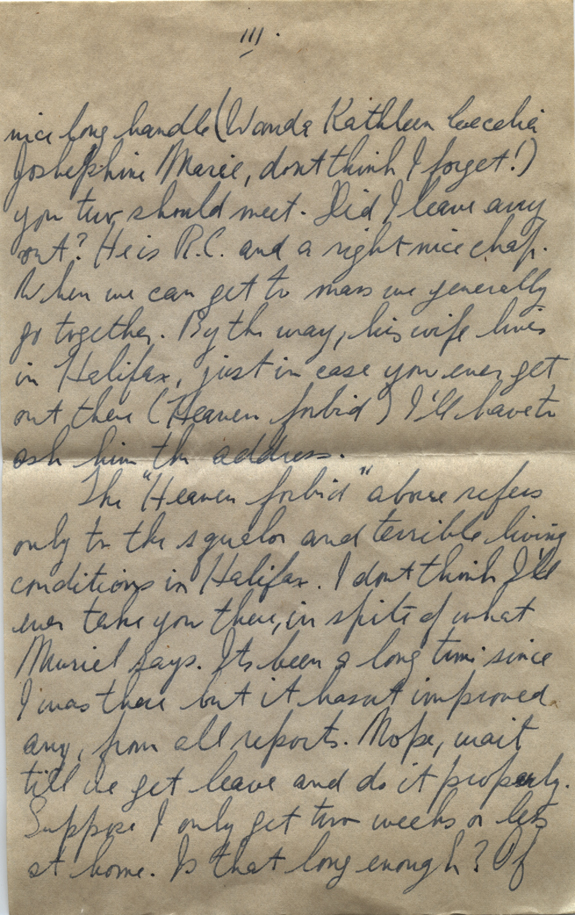 III.
nice long handle (Wanda Kathleen Cecelia
Josephine Marie, dont think I forget!)
you two should meet. Did I leave any
out? He is R.C. and a right nice chap.
When we can get to mass we generally
go together. By the way, his wife lives
in Halifax, just in case you ever get
out there (Heaven forbid) I'll have to
ask him the address.
The "Heaven forbid" above refers
only to the squalor and terrible living
conditions in Halifax. I dont think I'll
ever take you there, in spite of what
Muriel says. Its been a long time since
I was there but it hasnt improved
any, from all reports. Nope, wait
till we get leave and do it properly.
Suppose I only get two weeks or less
at home. Is that long enough? If